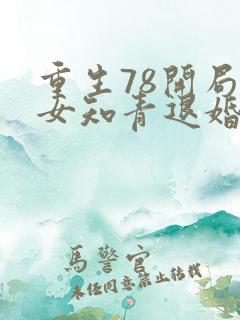 重生78開局
女知青退婚
馬警官
未经同意禁止转载